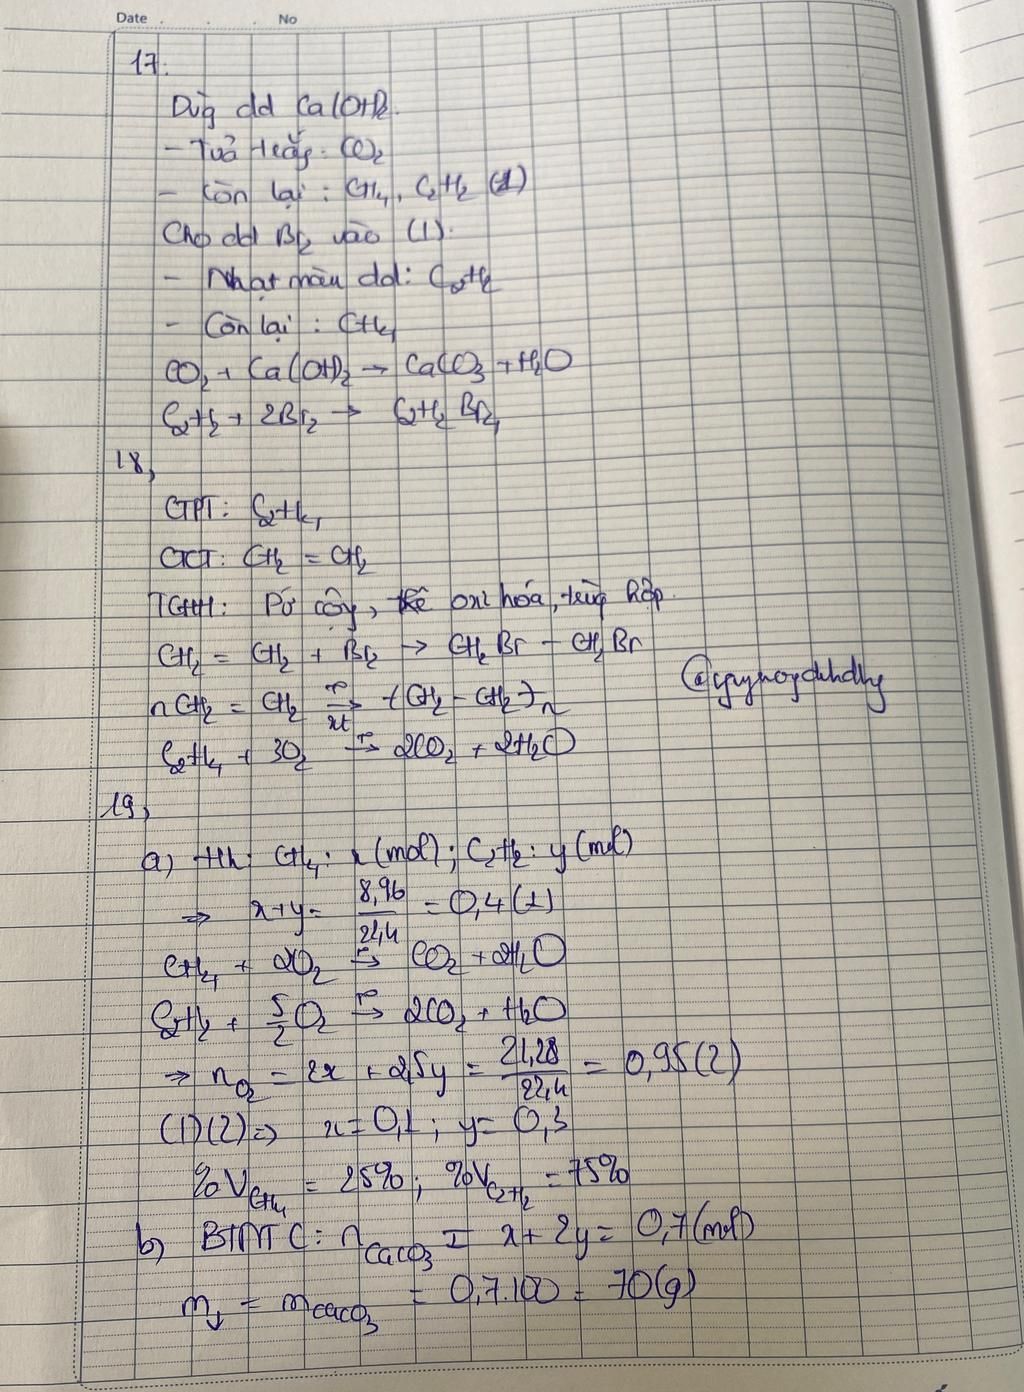 Date . . . No
17.
Dùg dd Ca(OH)2.
- Tủa trắg: CO2
- Còn lại: CH4, C2H2 (1)
Cho dd Br2 vào (1).
- Nhạt màu dd: C2H2
- Còn lại: CH4
CO2 + Ca(OH)2 → CaCO3 + H2O
C2H2 + 2Br2 → C2H2Br4
18,
CTPT: C2H4
CTCT: CH2 = CH2
TCHH: Pứ cộg, oxi hóa, trùg hợp.
CH2 = CH2 + Br2 → CH2Br - CH2Br
nCH2 = CH2 →(t°, xt) (CH2 - CH2)n
@
C2H4 + 3O2 →(t°) 2CO2 + 2H2O
19,
a) Hh: CH4: x (mol); C2H2: y (mol)
⇒ x+y = 8,96/22,4 = 0,4 (1)
CH4 + 2O2 →(t°) CO2 + 2H2O
C2H2 + 5/2 O2 →(t°) 2CO2 + H2O
⇒ nO2 = 2x + 2,5y = 21,28/22,4 = 0,95 (2)
(1)(2) ⇒ x = 0,1; y = 0,3
%VCH4 = 25%; %VC2H2 = 75%
b) BTNT C: nCaCO3 = x + 2y = 0,7 (mol)
m↓ = mCaCO3 = 0,7.100 = 70(g)